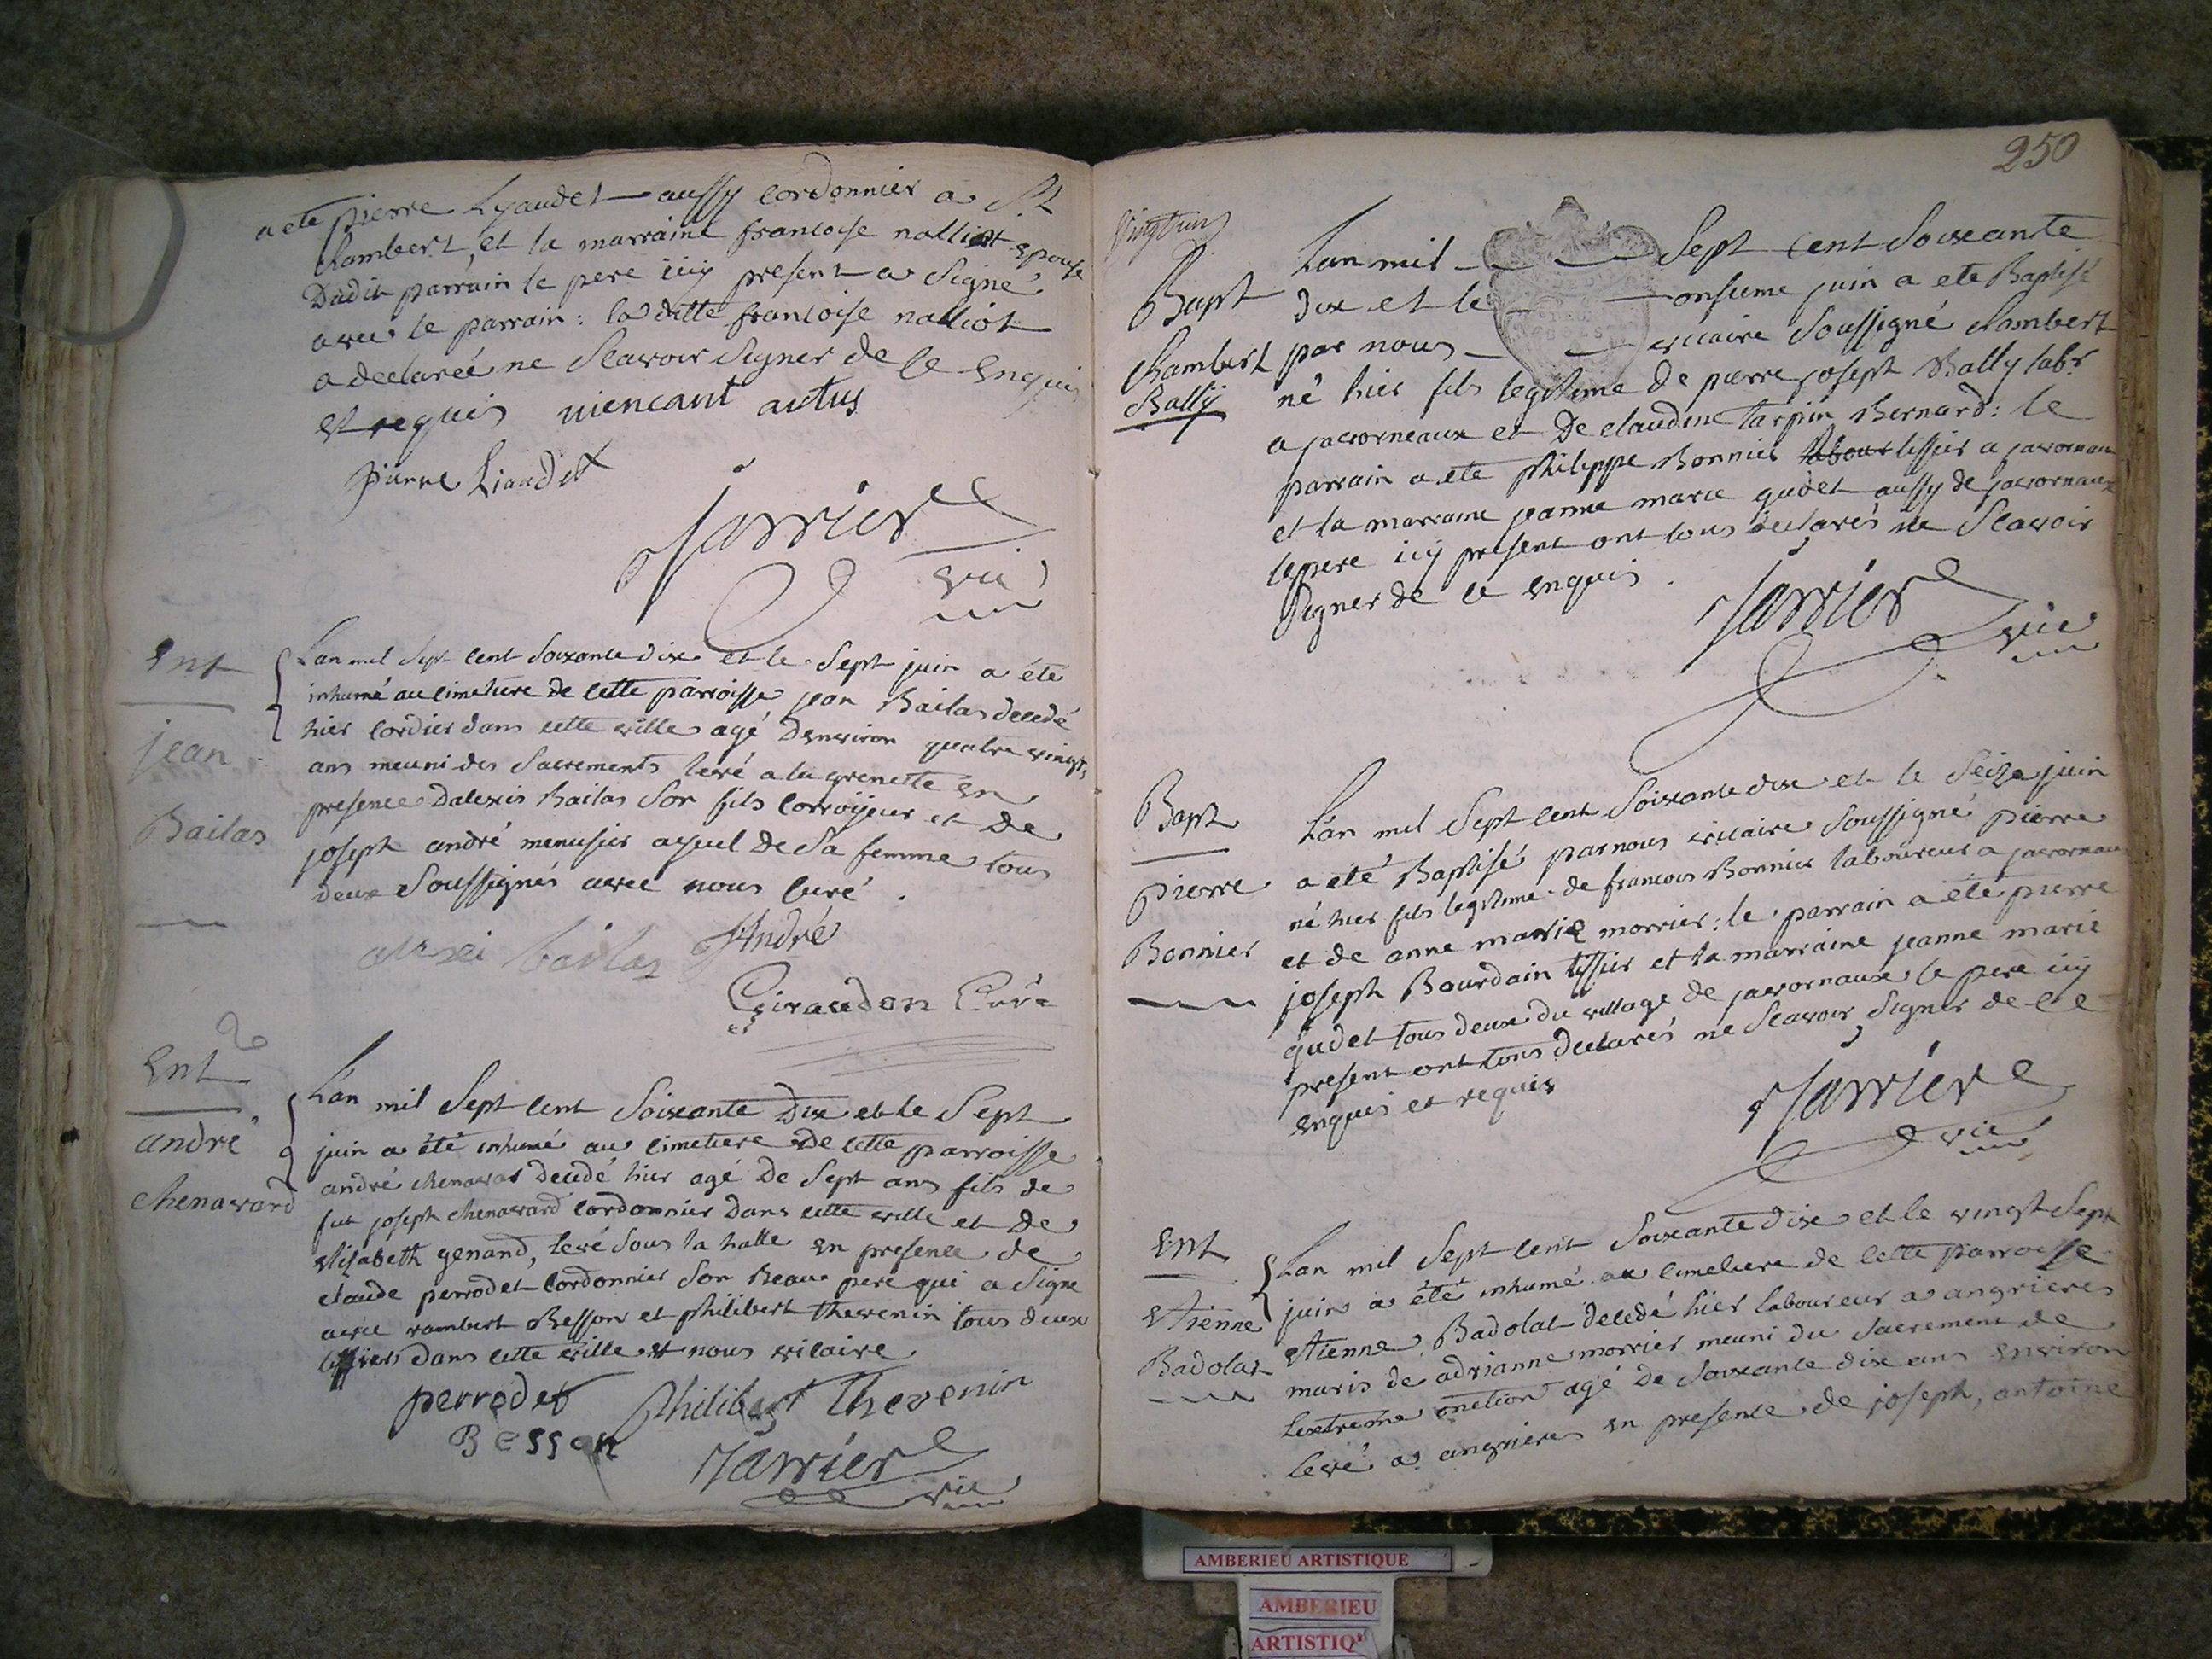 a ete pierre Lyaudet aussy cordonnier a St
Rambert, et la marraine francoise nalliot epouse
Dudit parrain le pere icy present a signé
avec le parrain : la ditte francoise nalliot
a declareé ne scavoir signer de ce enquis
et requis
pierre Liaudet
Jarrier
vic
Ent
jean
Bailas
L'an mil sept cent soixante dix et le sept juin a été
inhumé au cimetiere de cette parroisse jean Bailas decedé
hier cordier dans cette ville agé denviron quatre vingts
ans meuni des sacrements levé a la grenette en
presence dalexis Bailas son fils corroijeur et de
joseph andré menusier ayeul de sa femme tous
deux soussignés avec nous curé .
alexi bailas JAndré
Giraudon Curé
Ent
andré
chenavard
L'an mil sept cent soixante dix et le sept
juin a été inhumé au cimetiere de cette parroisse
andré chenavar decedé hier agé de sept ans fils de
fut joseph chenavard cordonnier dans cette ville et de
elisabeth genand, levé sous la halle en presence de
claude perrodet cordonnier son beau pere qui a signe
avec rambert Besson et philibert thevenin tous deux
tissiers dans cette ville et nous vicaire
perrodet philibert thevenin
Besson
Jarrier
vic
250
Bapt
Rambert
Bally
Lan mil sept cent soixante
dix et le onsieme juin a ete Baptisé
par nous vicaire soussigné Rambert
né hier fils legitime de pierre joseph Bally labr
a javorneaux et de claudine tarpin Bernard : le
parrain a ete philippe Bonnier labour tissier a javornaux
et la marraine jeanne marie gudet aussy de javornaux
le pere icy present ont tous declarés ne scavoir
signer de ce enquis .
Jarrier
vic
Bapt
Pierre
Bonnier
L'an mil sept cent soixante dix et le seize juin
a été Baptisé par nous vicaire soussigné pierre
né hier fils legitime de francois Bonnier laboureur a javornaux
et de anne marie morrier : le parrain a été pierre
joseph Bourdain tissier et la marraine jeanne marie
gudet tous deux du village de javornaux le pere icy
present ont tous declarés ne scavoir signer de ce
enquis et requis
Jarrier
vic
Ent
etienne
Badolat
Lan mil sept cent soixante dix et le vingt sept
juin a été inhumé au cimetiere de cette parroisse
etienne Badolat decedé hier laboureur a angrieres
maris de adrianne morrier meuni du sacrement de
lextreme onction agé de soixante dix ans environ
levé a angrieres en presence de joseph, antoine
AMBERIEU ARTISTIQUE
AMBERIEU
ARTISTIQ